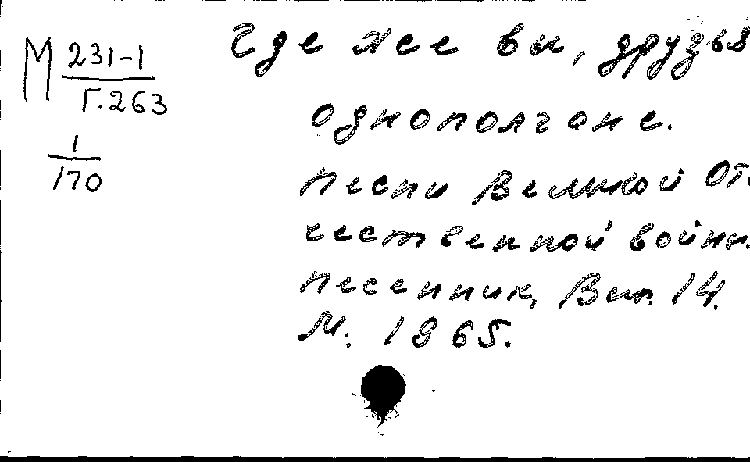 М 231-1
Г.263
1
170
Где же вы, друзья
однополчане.
Песни Великой Оте
чественной войны.
Песенник, Вып. 14.
М. 1965.